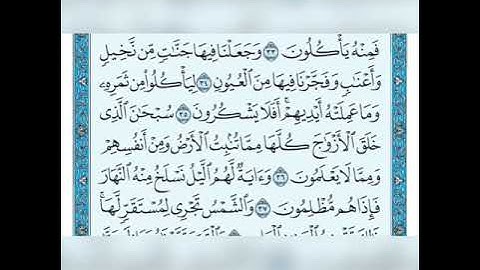 فَمِنْهُ يَأْكُلُونَ ٣٣ وَجَعَلْنَا فِيهَا جَنَّٰتٍ مِّن نَّخِيلٍ
وَأَعْنَٰبٍ وَفَجَّرْنَا فِيهَا مِنَ ٱلْعُيُونِ ٣٤ لِيَأْكُلُوا۟ مِن ثَمَرِهِۦ
وَمَا عَمِلَتْهُ أَيْدِيهِمْ ۖ أَفَلَا يَشْكُرُونَ ٣٥ سُبْحَٰنَ ٱلَّذِى
خَلَقَ ٱلْأَزْوَٰجَ كُلَّهَا مِمَّا تُنۢبِتُ ٱلْأَرْضُ وَمِنْ أَنفُسِهِمْ
وَمِمَّا لَا يَعْلَمُونَ ٣٦ وَءَايَةٌ لَّهُمُ ٱلَّيْلُ نَسْلَخُ مِنْهُ ٱلنَّهَارَ
فَإِذَا هُم مُّظْلِمُونَ ٣٧ وَٱلشَّمْسُ تَجْرِى لِمُسْتَقَرٍّ لَّهَا ۚ